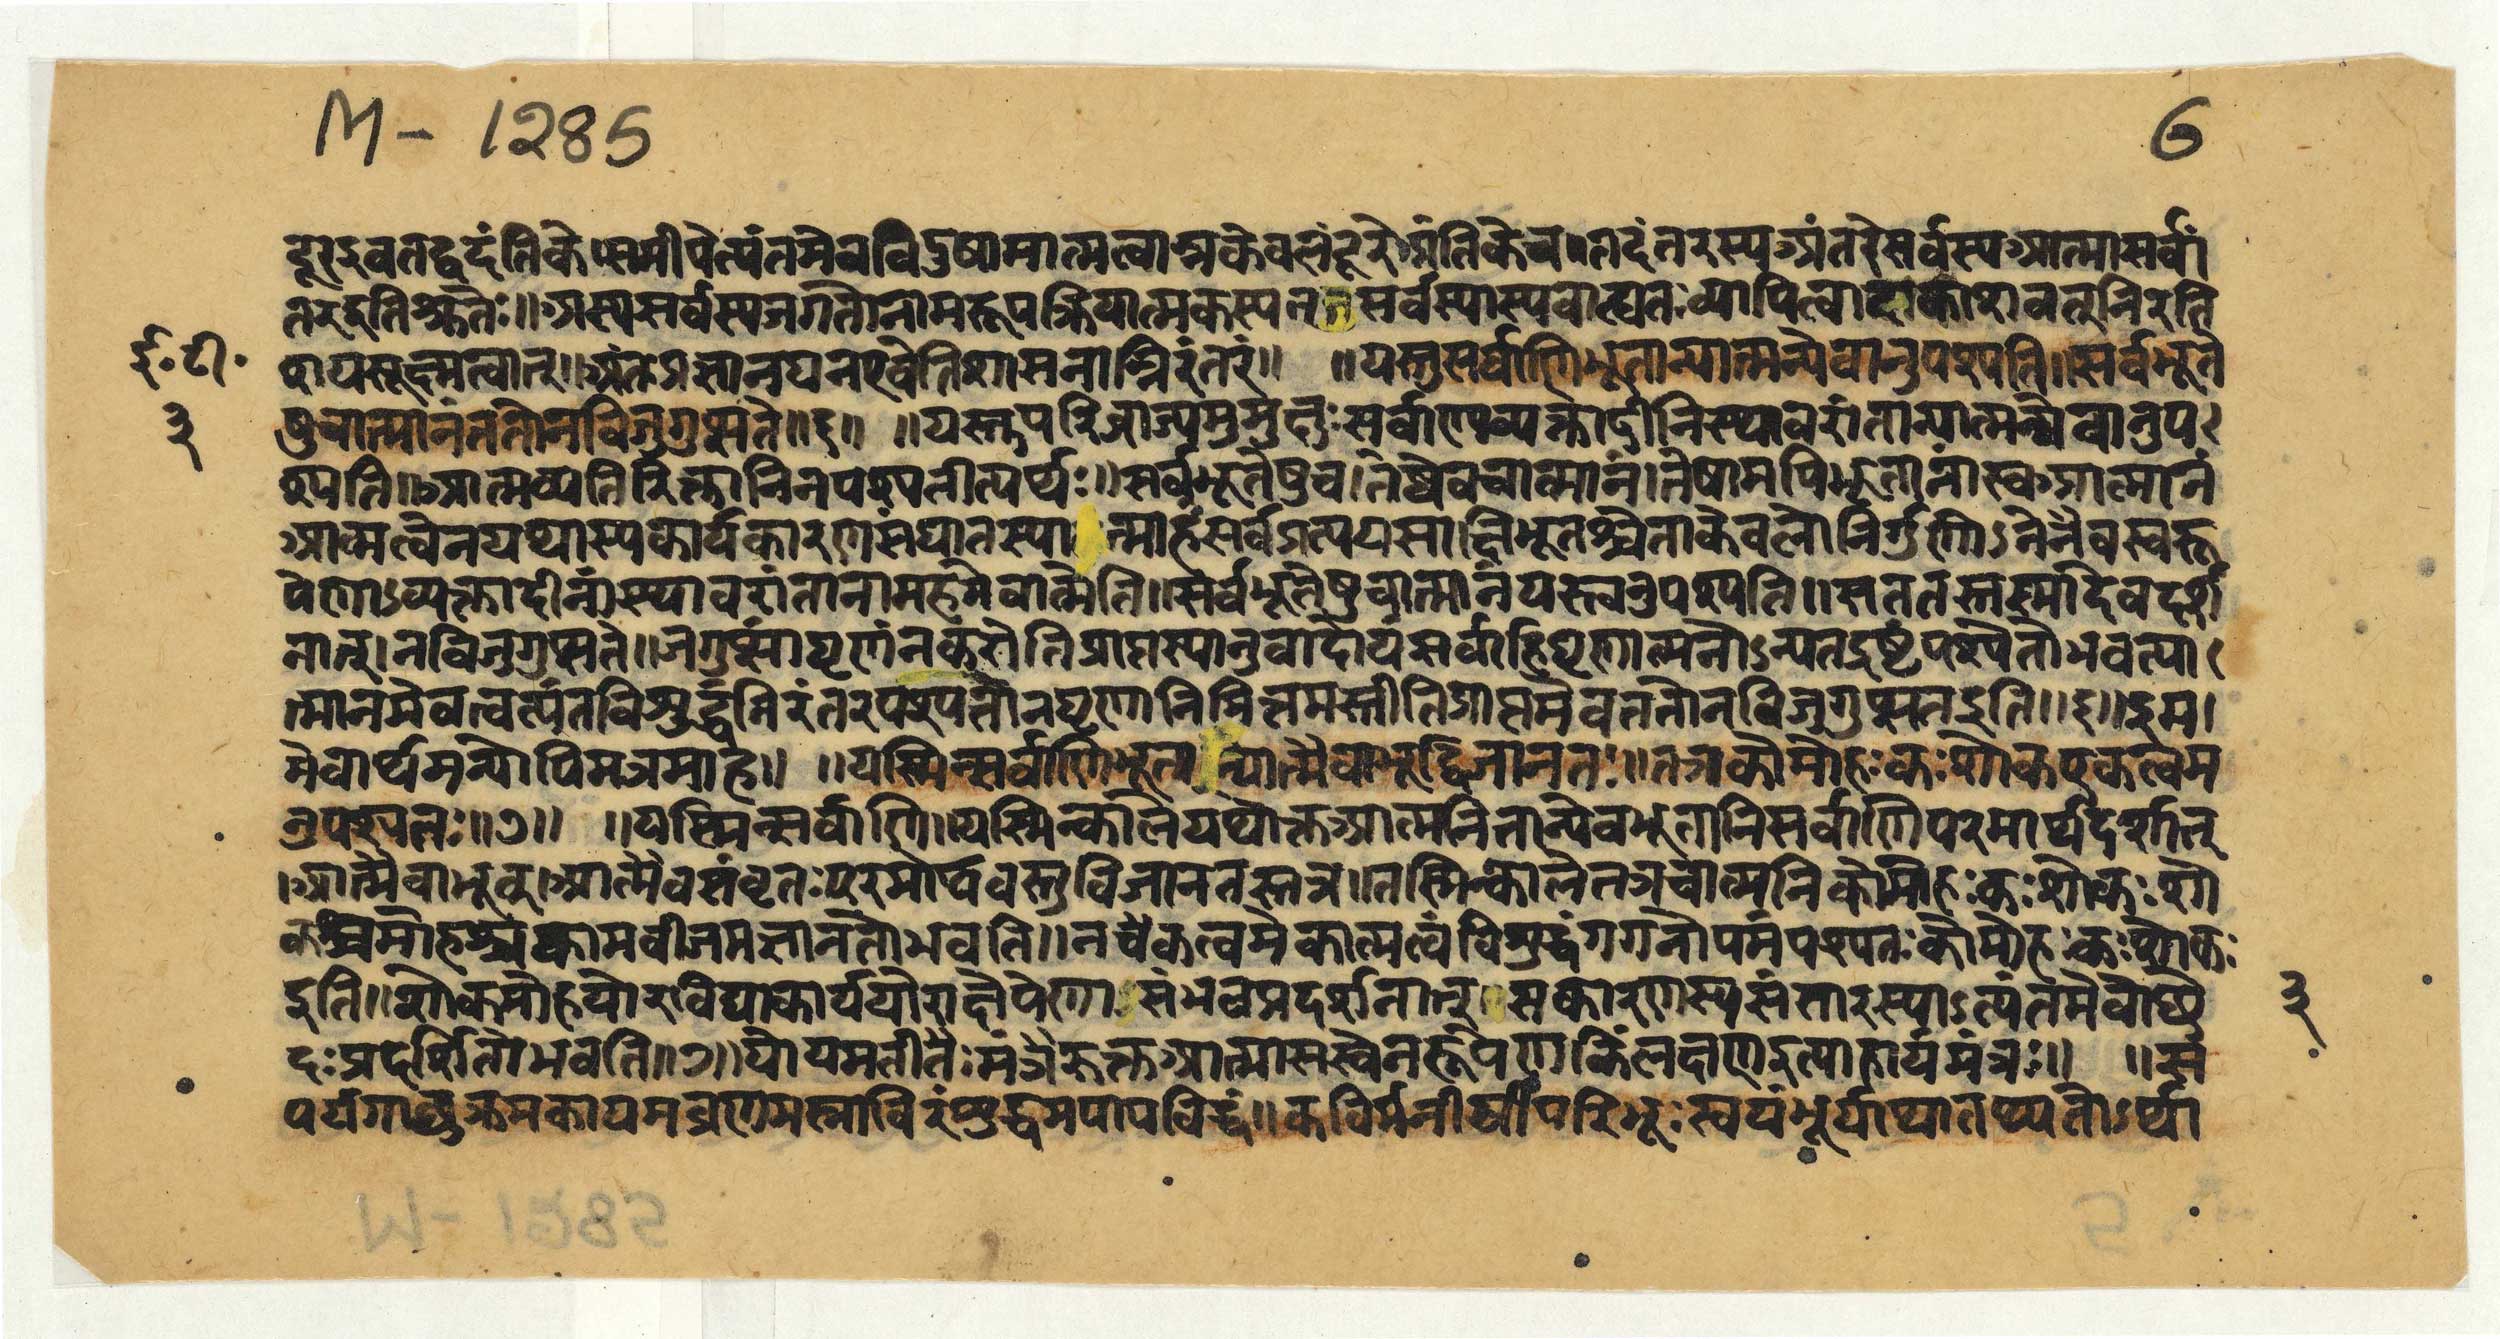 M - 1285
6
दूरइवतद्वदंतिके॥समीपेत्यंतमेवविदुषामात्मत्वान्नकेवलंदूरेअंतिकेच।तदंतरस्यअंतरेसर्वस्यआत्मासर्वां
तरइतिश्रुतेः॥अस्यसर्वस्यजगतोनामरूपक्रियात्मकस्यतत्सर्वस्यास्यबाह्यतःव्यापित्वादाकाशवत्निरति
ई॰टी॰
शयसूक्ष्मत्वात्॥अंतःप्रज्ञानघनएवेतिशासनान्निरंतरं॥ ॥यस्तुसर्वाणिभूतान्यात्मन्येवानुपश्यति॥सर्वभूते
३
षुचात्मानंततोनविजुगुप्सते॥६॥ ॥यस्तुपरिव्राज्यमुमुक्षुःसर्वाण्यव्यक्तादीनिस्थावरांतान्यात्मन्येवानुप
श्यति॥आत्मव्यतिरिक्तानिनपश्यतीत्यर्थः॥सर्वभूतेषुच।तेष्वेवचात्मानं।तेषामपिभूतानांस्वआत्मानं
आत्मत्वेनयथास्यकार्यकारणसंघातस्यात्माहंसर्वप्रत्ययसाक्षिभूतश्चेताकेवलोनिर्गुणोऽनेनैवस्वरू
पेणाऽव्यक्तादीनांस्थावरांतानामहमेवात्मेति॥सर्वभूतेषुचात्मानंयस्त्वनुपश्यति॥सततस्तस्मादेवदर्श
नात्।नविजुगुप्सते॥जुगुप्सांघृणांनकरोतिप्राप्तस्यानुवादोयंसर्वाहिघृणात्मनोऽन्यतदुष्टंपश्यतोभवत्या
त्मानमेवत्वत्यंतविशुद्धंनिरंतरंपश्यतोनघृणानिमित्तमस्तीतिप्राप्तमेवततोनविजुगुप्सतइति॥६॥इम
मेवार्थमन्योपिमंत्रमाह॥ ॥यस्मिन्सर्वाणिभूतान्यात्मैवाभूद्विजानतः॥तत्रकोमोहःकःशोकएकत्वम
नुपश्यतः॥७॥ ॥यस्मिन्सर्वाणि॥यस्मिन्कालेयथोक्तआत्मनितान्येवभूतानिसर्वाणिपरमार्थदर्शनात्
।आत्मैवाभूत्।आत्मैवसंवृतःपरमार्थवस्तुविजानतस्तत्र।तस्मिन्कालेतत्रचात्मनिकोमोहःकःशोकःशो
कश्चमोहश्चकामबीजमजानतोभवति॥नचैकत्वमेकात्मत्वंविशुद्धंगगनोपमंपश्यतःकोमोहःकःशोकः
इति॥शोकमोहयोरविद्याकार्ययोराक्षेपेणासंभवप्रदर्शनात्।सकारणस्यसंसारस्याऽत्यंतमेवोच्छे
३
दःप्रदर्शितोभवति॥७॥योयमतीतैःमंत्रैरुक्तआत्मासस्वेनरूपेणकिंलक्षणइत्याहायंमंत्रः॥ ॥स
पर्यगाच्छुक्रमकायमव्रणमस्नाविरंशुद्धमपापविद्धं॥कविर्मनीषीपरिभूःस्वयंभूर्याथातथ्यतोऽर्था